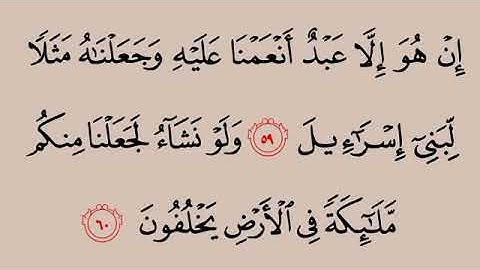 إِنْ هُوَ إِلَّا عَبْدٌ أَنْعَمْنَا عَلَيْهِ وَجَعَلْنَٰهُ مَثَلًا
لِّبَنِىٓ إِسْرَٰٓءِيلَ ٥٩ وَلَوْ نَشَآءُ لَجَعَلْنَا مِنكُم
مَّلَٰٓئِكَةً فِى ٱلْأَرْضِ يَخْلُفُونَ ٦٠